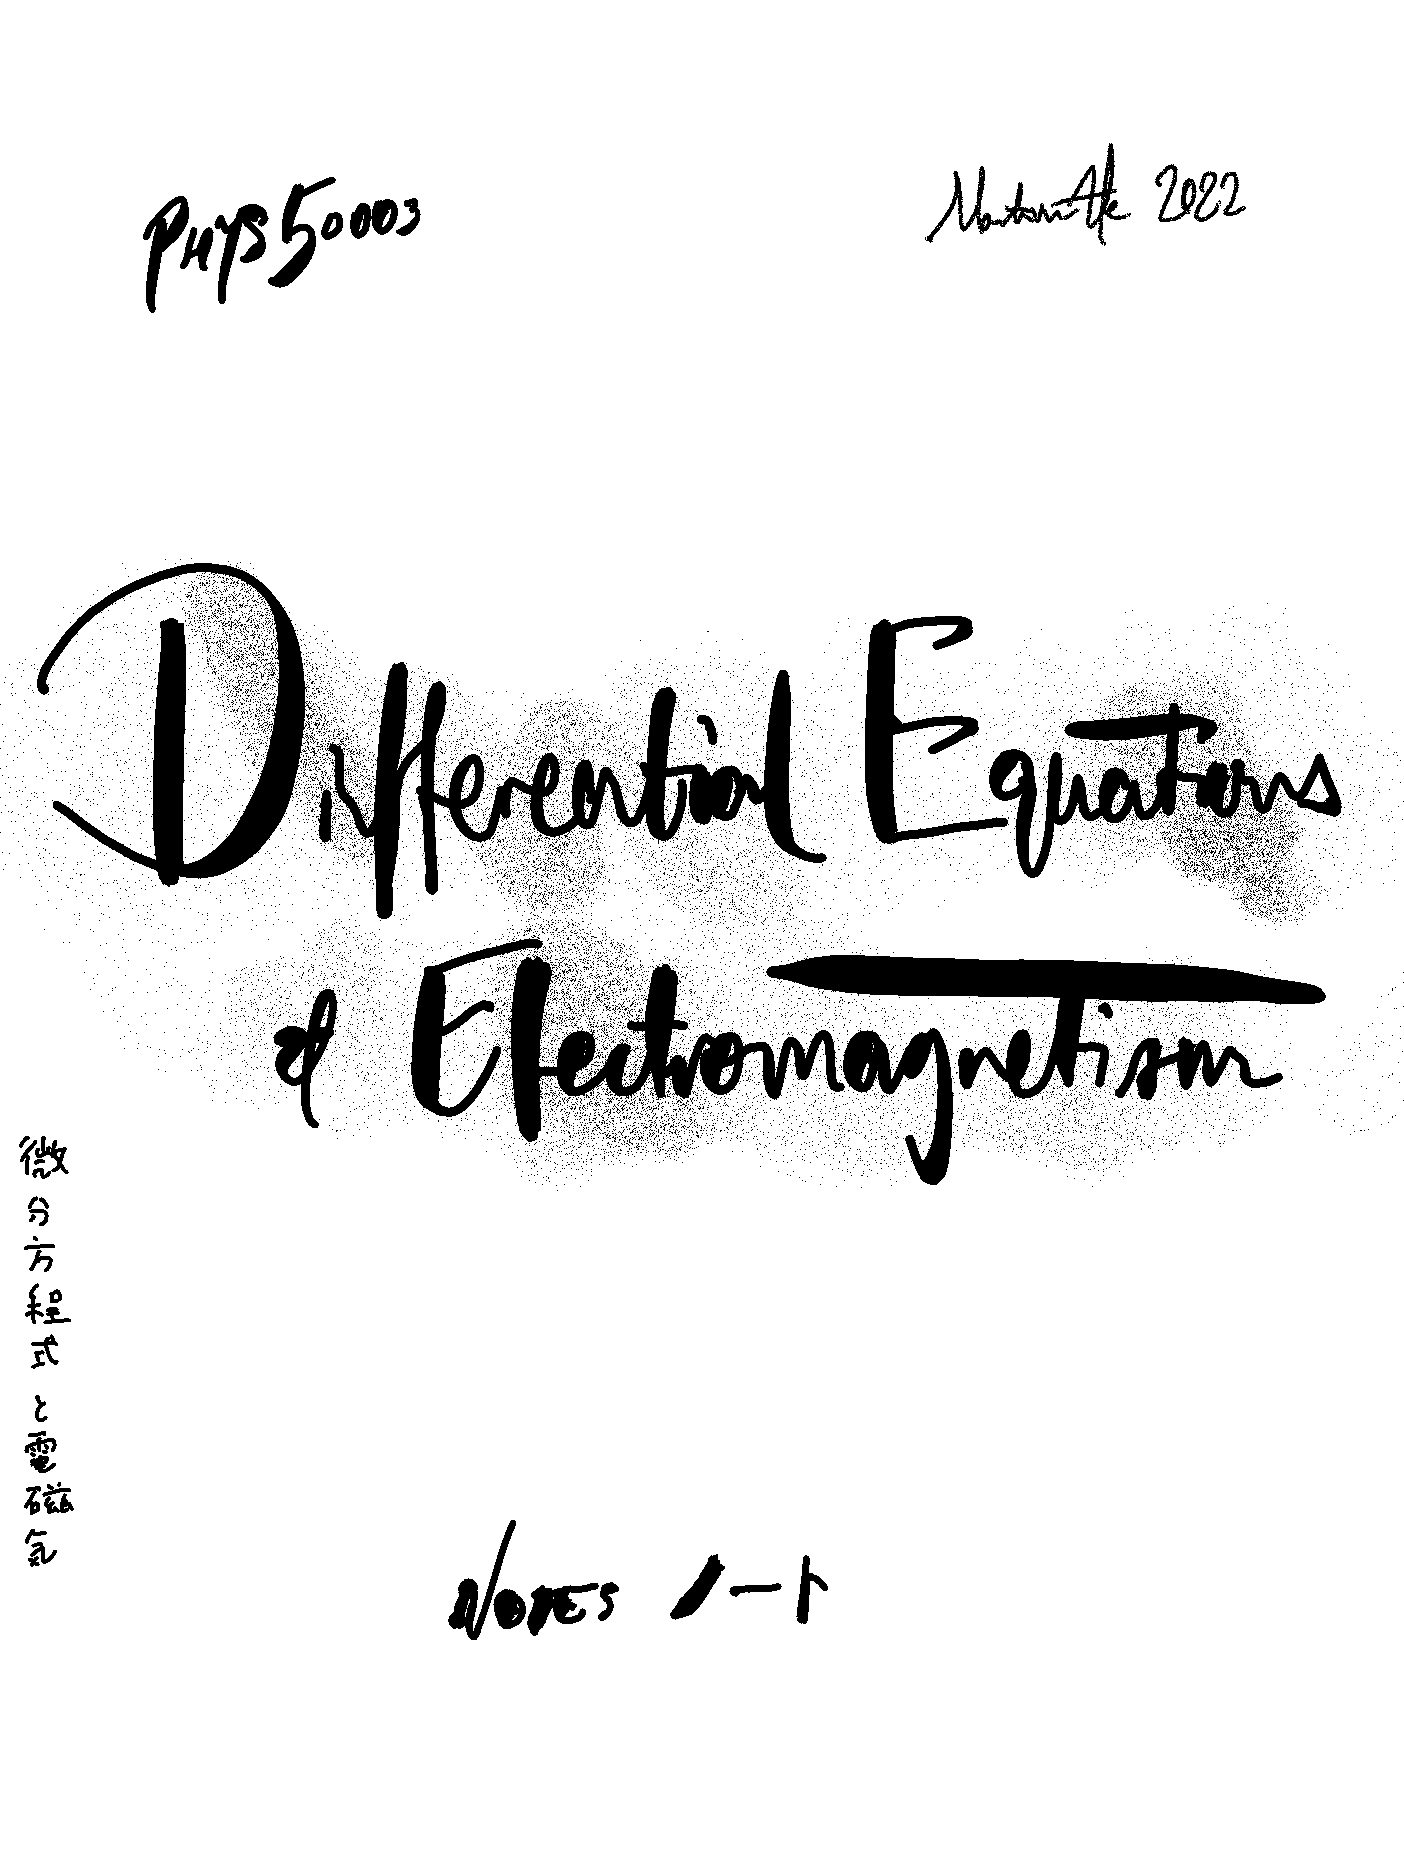 PHYS 50003
2022
Differential Equations
& Electromagnetism
微分方程式と電磁気
NOTES ノート